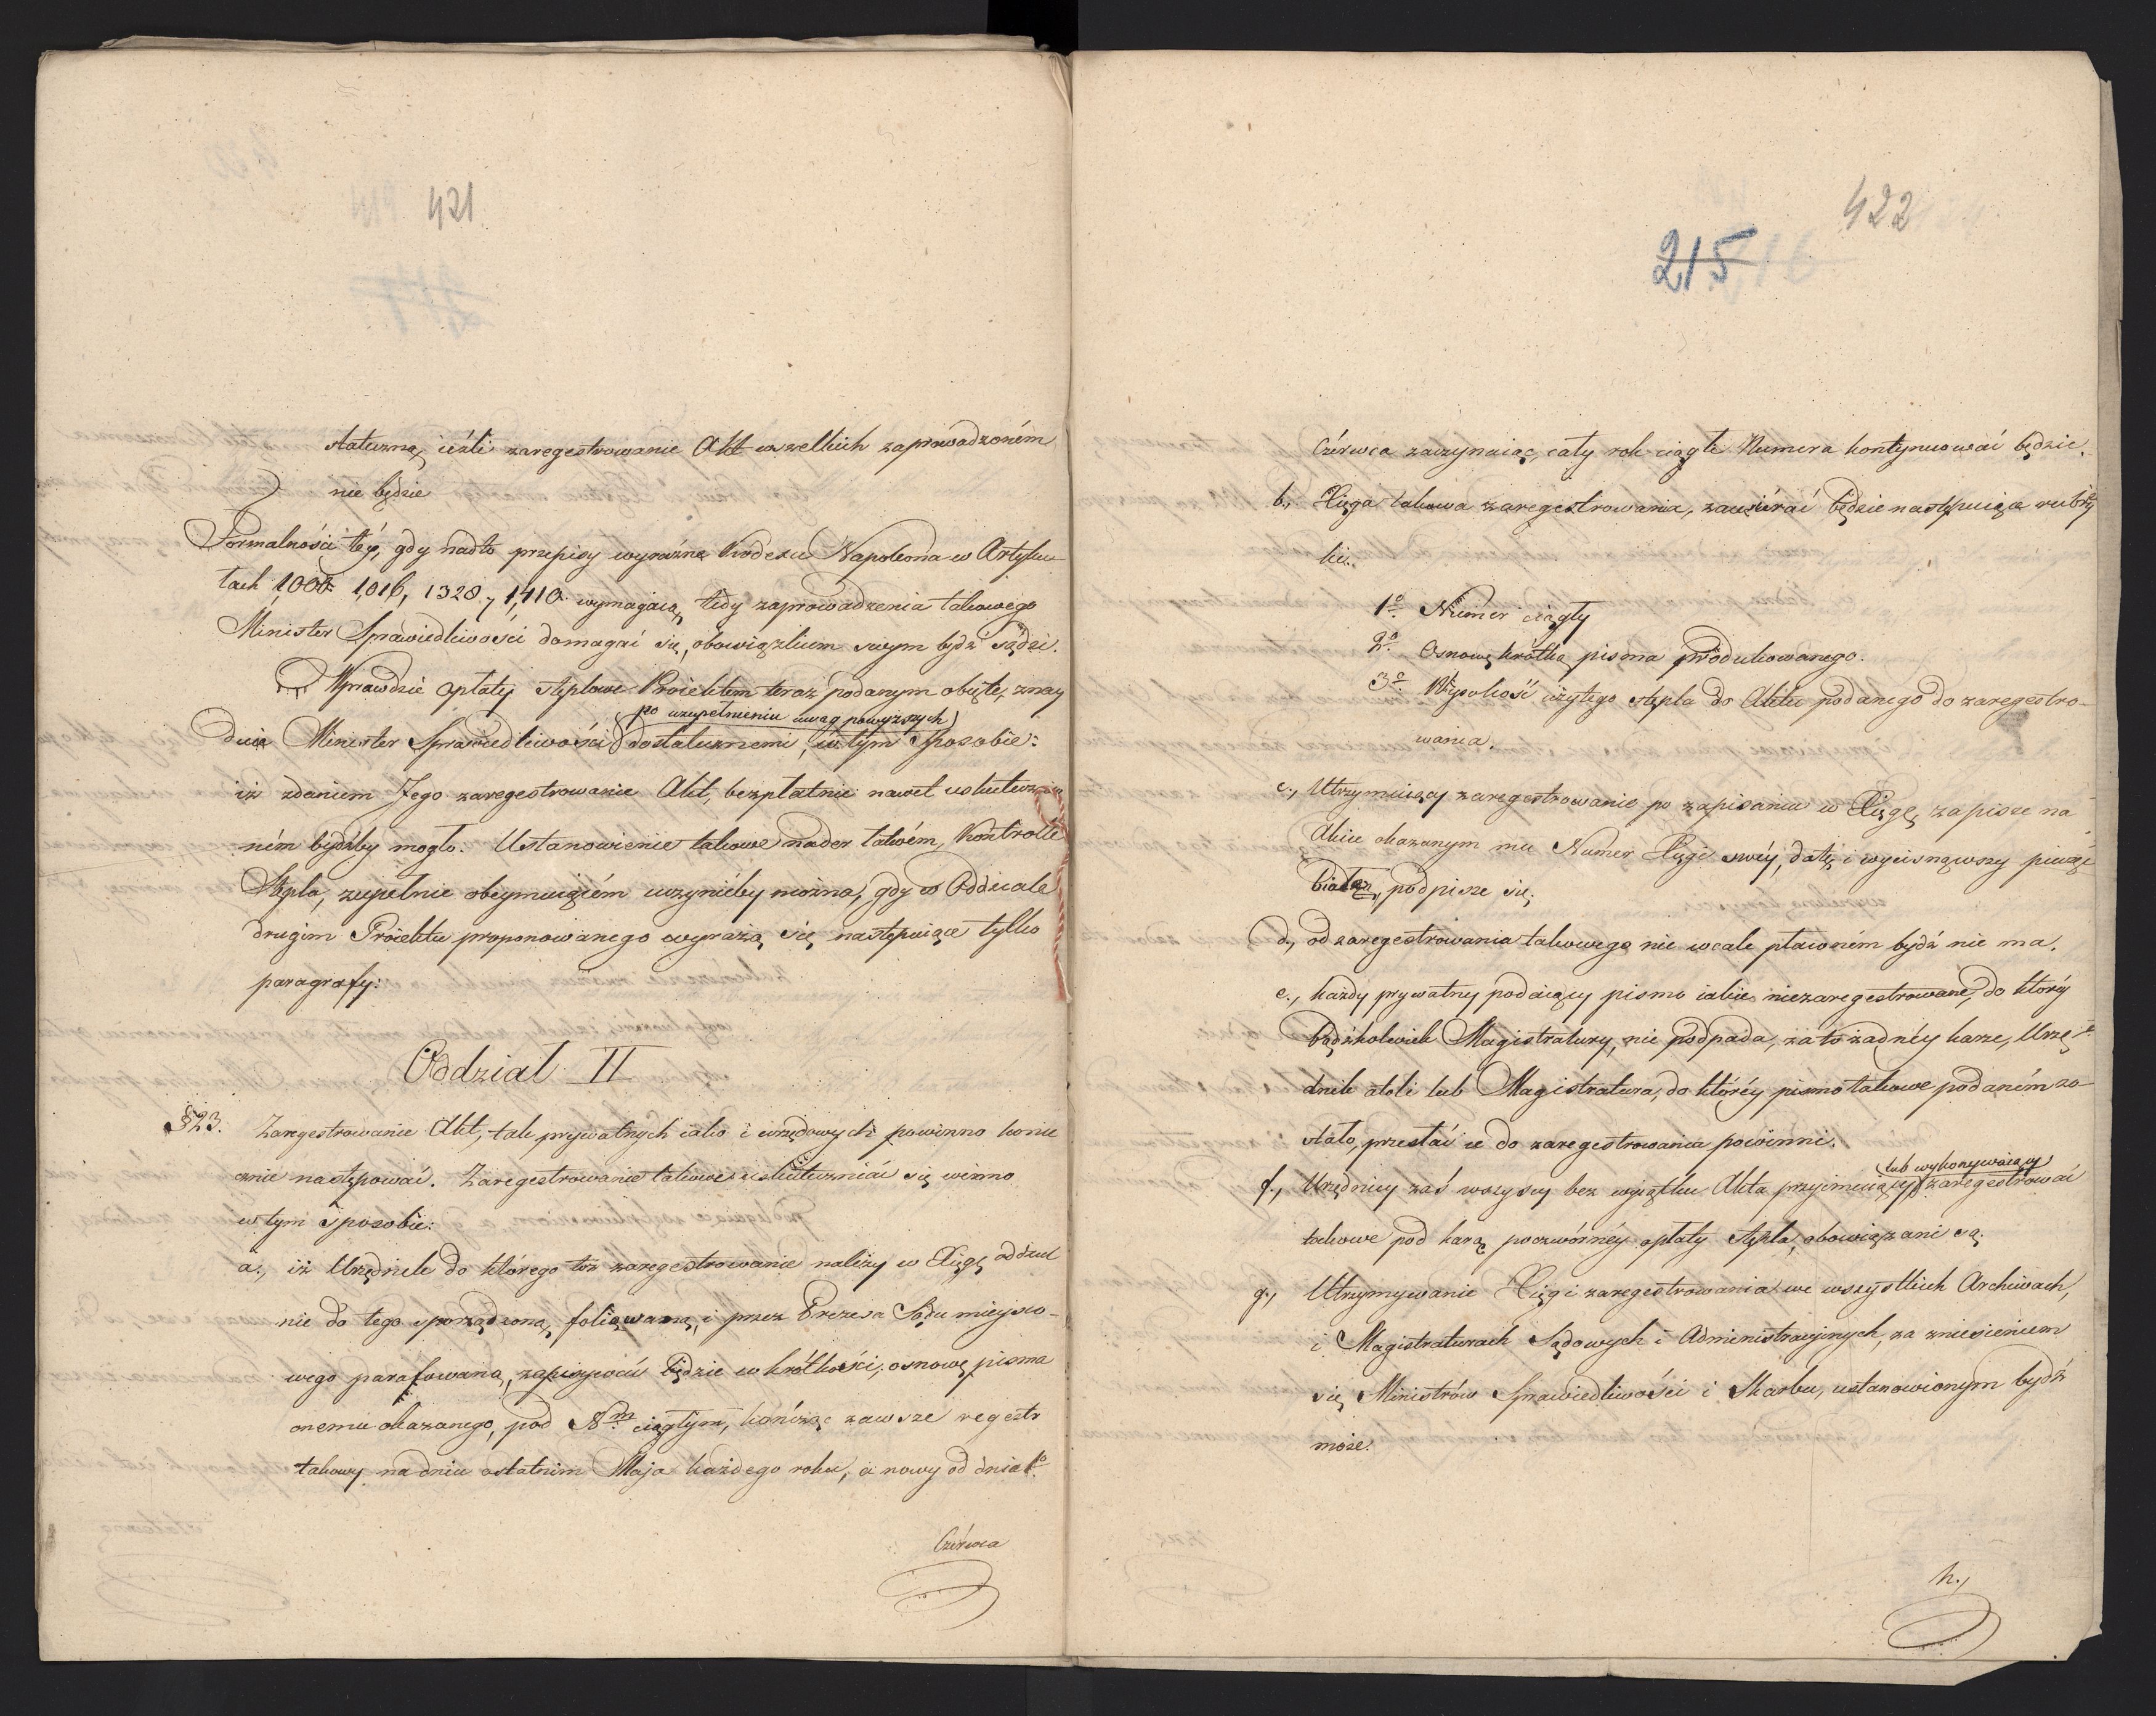 421
stateczną, ieżli zaregestrowanie Akt wszelkich zaprowadzoném
nie będzie
Formalności téy, gdy nadto przepisy wyraźne Kodexu Napoleona w Artyku-
łach 1000. 1,016, 1328, y 1,410. wymagaią, tedy zaprowadzenia takowego
Minister Sprawiedliwości domagać się, obowiązkiem swym bydź sądzi.
Wprawdzie opłaty stęplowe Proiektem teraz podanym obięte, znay
po uzupełnieniu uwag powyższych
duie Minister Sprawiedliwości dostatecznemi, w tym sposobie:
iż zdaniem Jego zaregestrowanie Akt, bezpłatnie nawet uskuteczn
ném bydźby mogło. Ustanowienie takowe nader łatwém, Kontrolle
Stępla, zupełnie obeymuiącém uczynićby można, gdy w Oddziale
drugim Proiektu proponowanego wyrażą się następuiące tylko
paragrafy:
Oddział II
§ 23. Zaregestrowanie Akt, tak prywatnych iako i urzędowych powinno konie
cznie następować. Zaregestrowanie takowe uskuteczniać się winno
w tym sposobie:
a., iż Urzędnik do którego toż zaregestrowanie należy w Xięgę oddziel
nie do tego sporządzoną, foliowaną, i przez Prezesa Sądu mieysco-
wego parafowaną, zapisywać będzie w krótkości, osnowę pisma
onemu okazanego, pod Nrm ciągłym, kończąc zawsze regestr
takowy na dniu ostatnim Maja każdego roku, a nowy od dnia 1o
Czérwca
422
215
Czérwca zaczynaiąc, cały rok ciągłe Numera kontynuować będzie.
b., Xięga takowa zaregestrowania, zawiérać będzie następuiące rubry
ki.
1o Numer ciągły
2o Osnowę krótką pisma produkowanego.
3o Wysokość użytego stępla do Aktu podanego do zaregestro-
wania.
c., Utrzymuiący zaregestrowanie po zapisaniu w Xięgę, zapisze na
Akcie okazanym mu Numer Xięgi swéy, datę i wycisnąwszy pieczęć
białą, podpisze się.
d., od zaregestrowania takowego nic wcale płaconém bydź nie ma.
e., każdy prywatny podaiący pismo iakie niezaregestrowane, do któréy
bądźkolwiek Magistratury, nie podpada, za to żadnéy karze, Urzę-
dnik atoli lub Magistratura, do któréy pismo takowe podaném zo-
stało, przesłać ie do zaregestrowania powinni.
lub wykonywaiący
f., Urzędnicy zaś wszyscy bez wyiątku Akta przyimuiący zaregestrować
takowe pod karą poczwórnéy opłaty stępla, obowiązani są.
g., Utrzymywanie Xięgi zaregestrowania we wszystkich Archiwach,
i Magistraturach Sądowych i Administracyinych, za zniesieniem
się Ministrów Sprawiedliwości i Skarbu, ustanowionym bydź
może.
h.,